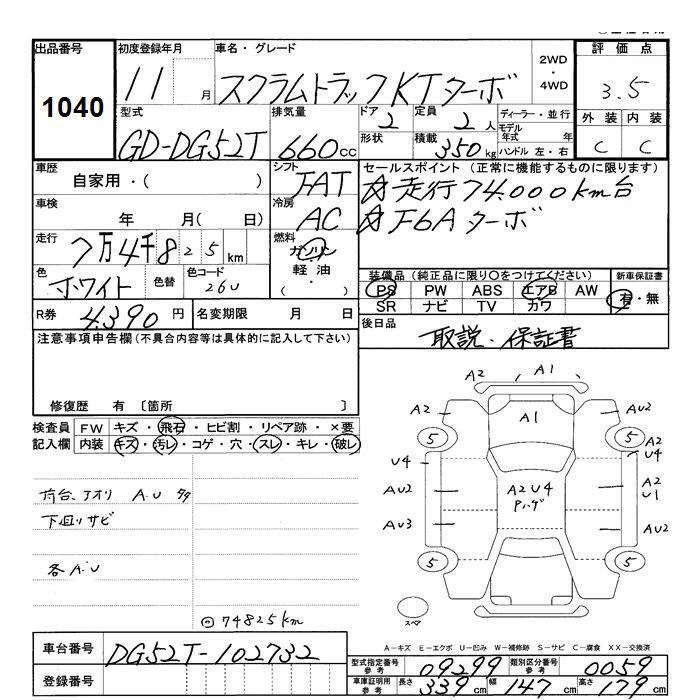 出品番号 初度登録年月 車名・グレード 2WD・4WD 評価点
1040 11 月 スクラムトラックKTターボ 3.5
型式 排気量 ドア 2 定員 2 人 ディーラー・並行 外装 内装
GD-DG52T 660cc 形状 積載 350kg モデル年式 年 ハンドル 左・右 C C
車歴 シフト セールスポイント (正常に機能するものに限ります)
自家用・( ) FAT ☆走行74.000km台
車検 冷房 ☆F6Aターボ
年 月( 日) AC
走行 燃料
7万4千825km ガソリン
色 色替 色コード 軽油 装備品 (純正品に限り○をつけてください) 新車保証書
ホワイト 26U ( ・ ) PS PW ABS エアB AW 有・無
SR ナビ TV カワ
R券 4.390 円 名変期限 月 日 後日品
注意事項申告欄 (不具合内容等は具体的に記入して下さい) 取説・保証書
修復歴 有 〔箇所 〕
検査員 FW キズ・飛石・ヒビ割・リペア跡・×要
記入欄 内装 キズ・汚レ・コゲ・穴・スレ・キレ・破レ
A2 A1
A2 A1 AU2
5 5 A2
U4 U4
AU2 A2U4 A2
Pハゲ U1
AU3 AU2
5 5
スペア
荷台、アオリ A.U
下廻りサビ
各A.U
◎74825km
A-キズ E-エクボ U-凹み W-補修跡 S-サビ C-腐食 XX-交換済
車台番号 DG52T-102732
型式指定番号 参考 09299 類別区分番号 参考 0059
登録番号 車庫証明用 参考 長さ 339cm 幅 147cm 高さ 179cm